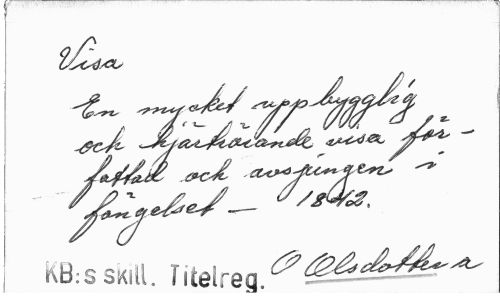 Visa
En mycket uppbygglig
och hjärtrörande visa för-
fattad och avsjungen i
fängelset – 1842.
KB:s skill. Titelreg. O Olsdotter a